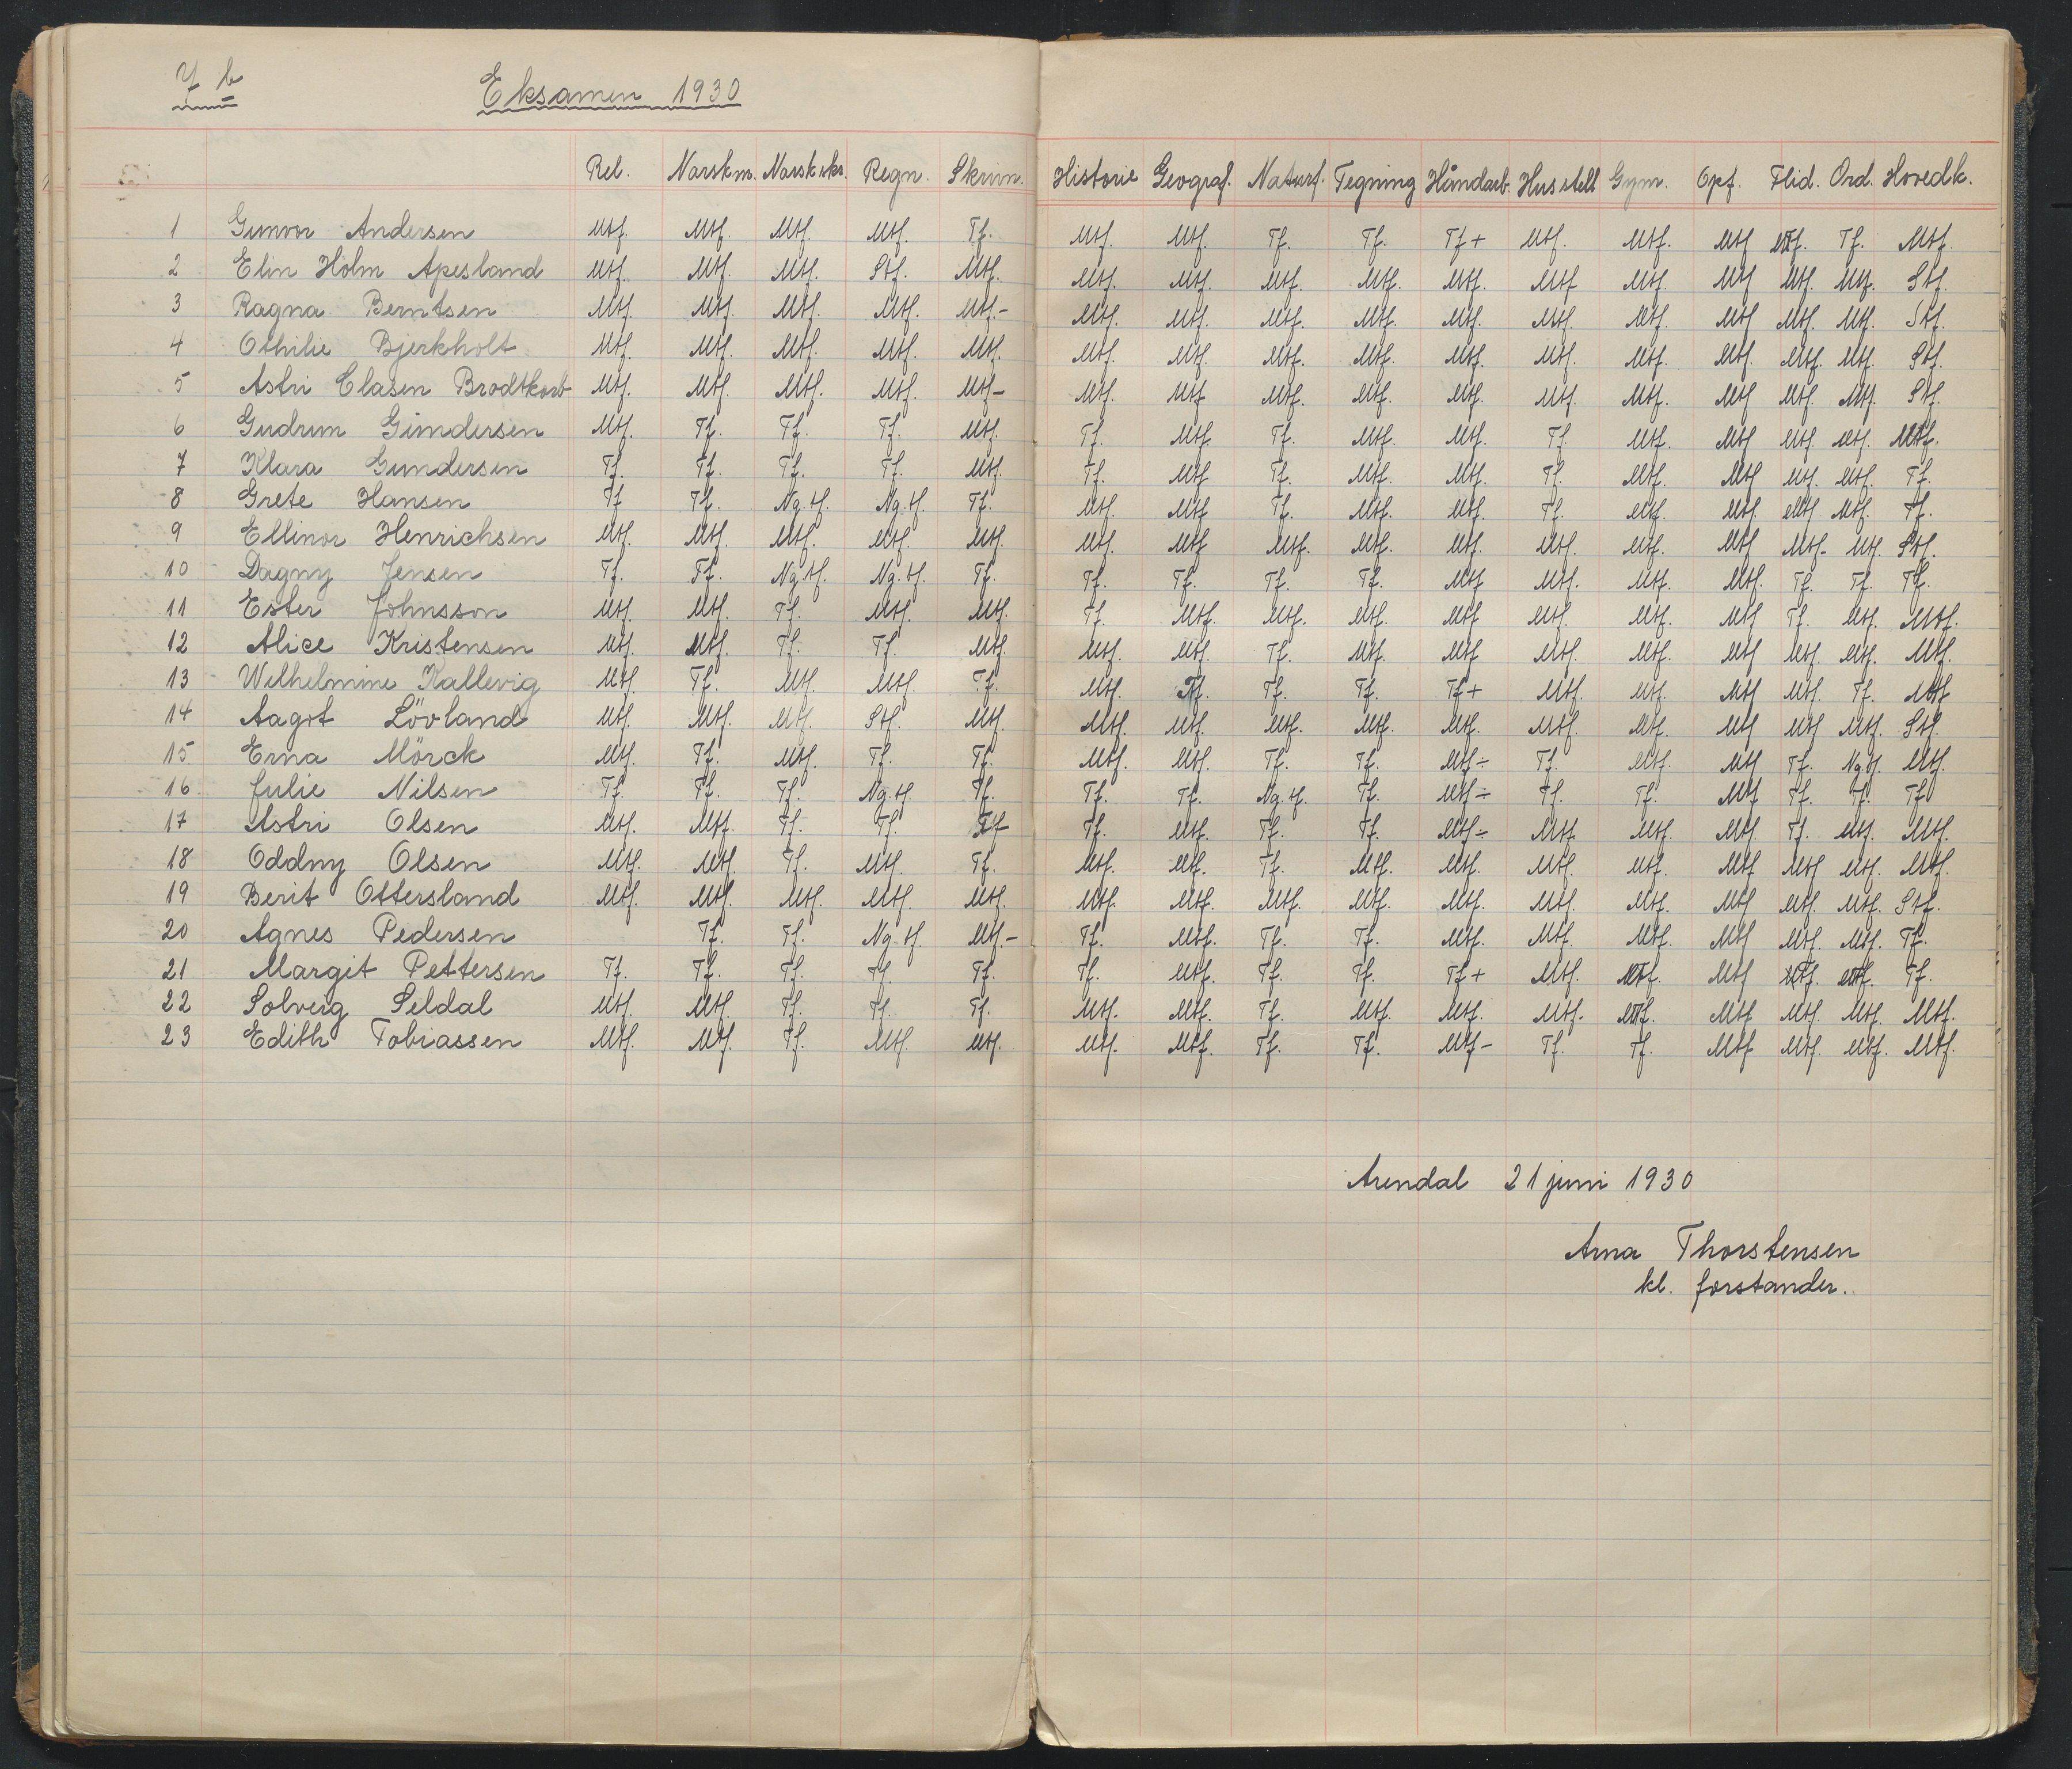 7 b Eksamen 1930
Rel. Norsk m. Norsk skr. Regn. Skrivn. Historie Geograf. Naturf. Tegning Håndarb. Husstell Gym. Opf. Flid. Ord. Hovedk.
1 Gunvor Andersen Mtf. Mtf. Mtf. Mtf. Tf. Mtf. Mtf. Tf. Tf. Tf+ Mtf. Mtf. Mtf Mtf. Tf. Mtf.
2 Elin Holm Apesland Mtf. Mtf. Mtf. Stf. Mtf. Mtf. Mtf. Mtf. Mtf. Mtf. Mtf Mtf. Mtf Mtf. Mtf. Stf.
3 Ragna Berntsen Mtf. Mtf. Mtf. Mtf. Mtf.- Mtf. Mtf. Mtf. Mtf. Mtf. Mtf. Mtf. Mtf Mtf. Mtf. Stf.
4 Othilie Bjerkholt Mtf. Mtf. Mtf. Mtf. Mtf. Mtf. Mtf. Mtf. Mtf. Mtf. Mtf. Mtf. Mtf. Mtf. Mtf. Stf.
5 Astri Clasen Brodtkorb Mtf. Mtf. Mtf. Mtf. Mtf- Mtf. Mtf Mtf. Mtf. Mtf. Mtf. Mtf. Mtf Mtf. Mtf. Stf.
6 Gudrun Gundersen Mtf. Tf. Tf. Tf. Mtf. Tf. Mtf Tf. Mtf. Mtf. Tf. Mtf. Mtf Mtf. Mtf. Mtf.
7 Klara Gundersen Tf. Tf. Tf. Tf. Mtf. Tf. Mtf Tf. Mtf. Mtf. Tf. Mtf. Mtf Mtf. Mtf. Tf.
8 Grete Hansen Tf Tf. Ng.tf. Ng.tf. Tf. Mtf. Mtf Tf. Mtf. Mtf. Tf. Mtf. Mtf Mtf Mtf. Tf.
9 Ellinor Henrichsen Mtf. Mtf. Mtf. Mtf. Mtf. Mtf. Mtf Mtf. Mtf. Mtf. Mtf. Mtf. Mtf Mtf. Mtf. Stf.
10 Dagny Jensen Tf. Tf. Ng.tf. Ng.tf. Tf. Tf. Tf. Tf. Tf. Mtf Mtf. Mtf. Mtf. Tf. Tf. Tf.
11 Ester Johnsson Mtf. Mtf. Tf. Mtf. Mtf. Tf. Mtf. Mtf. Mtf. Mtf Mtf. Mtf. Mtf Tf. Mtf. Mtf.
12 Alice Kristensen Mtf. Mtf. Tf. Tf. Mtf. Mtf. Mtf. Tf. Mtf. Mtf Mtf. Mtf. Mtf Mtf. Mtf. Mtf.
13 Wilhelmine Kallevig Mtf. Tf. Mtf. Mtf. Tf. Mtf. Tf. Tf. Tf. Tf+ Mtf. Mtf. Mtf Mtf. Tf. Mtf
14 Aagot Lövland Mtf. Mtf. Mtf. Stf. Mtf. Mtf. Mtf. Mtf. Mtf. Mtf. Mtf. Mtf. Mtf Mtf Mtf. Stf.
15 Erna Mörck Mtf. Tf. Mtf. Tf. Tf. Mtf. Mtf. Tf. Tf. Mtf÷ Tf. Mtf. Mtf Tf. Ng.tf. Mtf.
16 Julie Nilsen Tf. Tf. Tf. Ng.tf. Tf. Tf. Tf. Ng.tf. Tf. Mtf÷ Tf. Tf. Mtf Tf. Tf. Tf
17 Astri Olsen Mtf. Mtf. Tf. Tf. Tf Tf. Mtf. Tf. Tf. Mtf÷ Mtf Mtf. Mtf. Tf. Mtf. Mtf.
18 Oddny Olsen Mtf. Mtf. Tf. Mtf. Tf. Mtf. Mtf. Tf. Mtf. Mtf. Mtf. Mtf. Mtf Mtf Mtf. Mtf.
19 Berit Ottersland Mtf. Mtf. Mtf. Mtf. Mtf. Mtf. Mtf. Mtf. Mtf. Mtf. Mtf. Mtf. Mtf Mtf. Mtf. Stf.
20 Agnes Pedersen Tf. Tf. Ng.tf. Mtf.- Tf. Mtf. Tf. Tf. Mtf. Mtf. Mtf. Mtf Mtf. Mtf. Tf.
21 Margit Pettersen Tf. Tf. Tf. Tf. Tf. Tf. Mtf. Tf. Tf. Tf+ Mtf. Mtf. Mtf Mtf. Mtf. Tf.
22 Solveig Seldal Mtf. Mtf. Tf. Tf. Tf. Mtf. Mtf. Tf. Mtf. Mtf. Mtf. Mtf. Mtf Mtf. Mtf. Mtf.
23 Edith Tobiassen Mtf. Mtf. Tf. Mtf Mtf. Mtf. Mtf. Tf. Tf. Mtf- Tf. Tf. Mtf Mtf. Mtf. Mtf.
Arendal 21 juni 1930
Arna Thorstensen
kl. forstander.